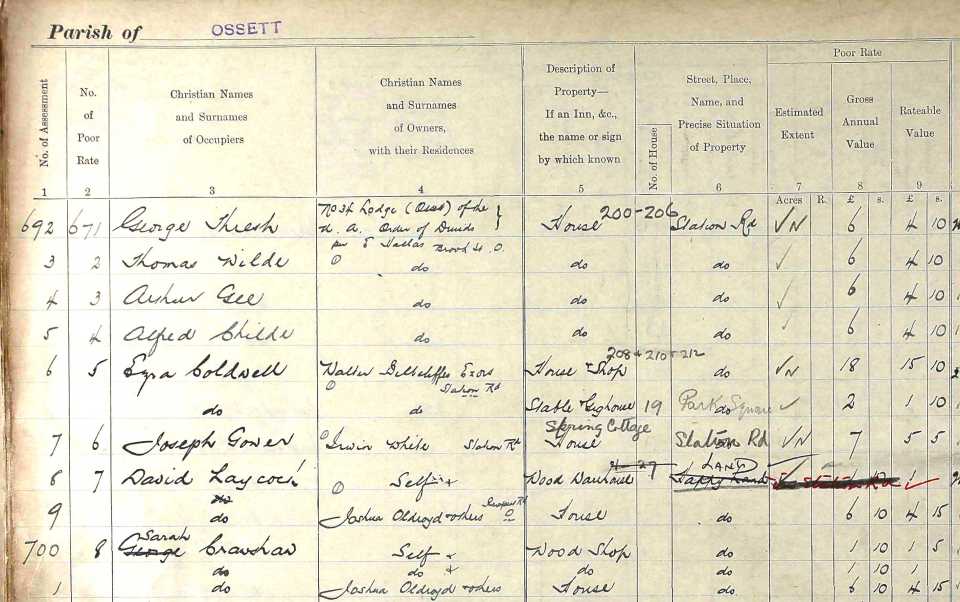 Parish of OSSETT
No. of Assessment
No. of Poor Rate
Christian Names and Surnames of Occupiers
Christian Names and Surnames of Owners, with their Residences
Description of Property— If an Inn, &c., the name or sign by which known
No. of House
Street, Place, Name, and Precise Situation of Property
Poor Rate
Estimated Extent
Gross Annual Value
Rateable Value
1 2 3 4 5 6 7 8 9
Acres R. £ s. £ s.
692 671 George Thresh No 34 Lodge (Ossett) of the Order of Druids House 200-206 Station Rd 6 4 10
3 2 Thomas Wilde do do do 6 4 10
4 3 Arthur Gee do do do 6 4 10
5 4 Alfred Childe do do do 6 4 10
6 5 Ezra Coldwell Walter Exors Station Rd House & Shop 208 & 210 & 212 do 18 15 10
do do Stable 19 Park Square do 2 1 10
7 6 Joseph Gower Irwin White Station Rd Spring Cottage House Station Rd 7 5 5
8 7 David Laycock Self Wood Warehouse Land Station Rd
9 do Joshua Oldroyd & others House do 6 10 4 15
700 8 Sarah George Crawshaw Self Wood Shop do 1 10 1 5
do do do do 1 10 1
1 do Joshua Oldroyd & others House do 6 10 4 15